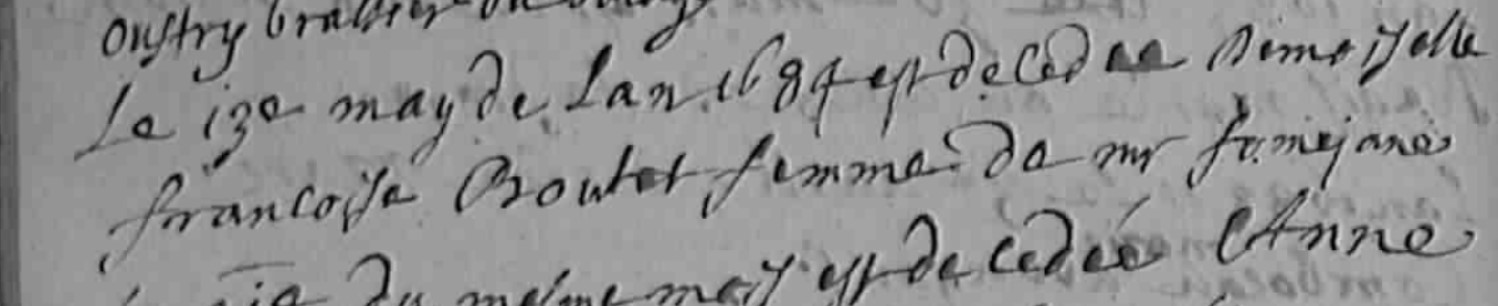 oustry brassier du bourg
Le 13e may de Lan 1684 est decedee Dimoiselle
francoise Boutet femme de mr fomejane
du mesme mois est decedée Anne